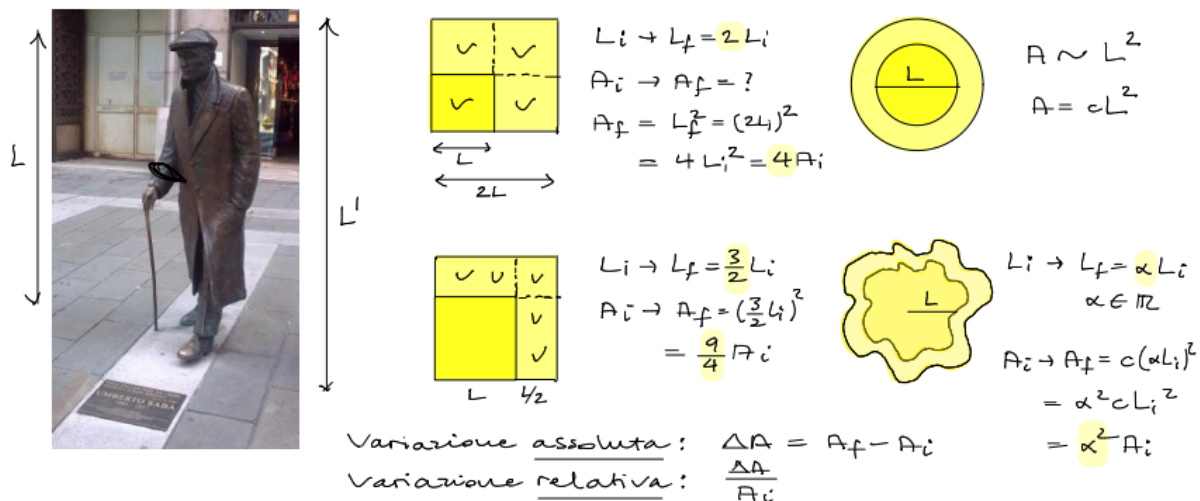 L
L'
UMBERTO SABA
L
2L
Li → Lf = 2Li
Ai → Af = ?
Af = Lf² = (2Li)²
= 4Li² = 4Ai
L
A ~ L²
A = cL²
L
L/2
Li → Lf = 3/2 Li
Ai → Af = (3/2 Li)²
= 9/4 Ai
L
Li → Lf = αLi
α ∈ ℝ
Ai → Af = c(αLi)²
= α²cLi²
= α²Ai
Variazione assoluta: ΔA = Af - Ai
Variazione relativa: ΔA/Ai